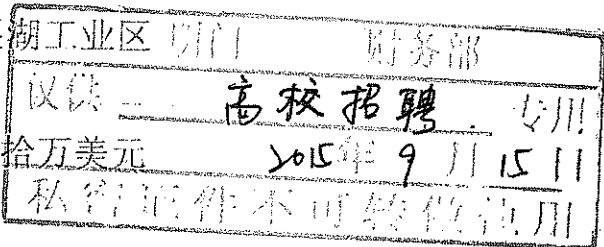 湖工业区 部门 财务部
仅供 高校招聘 专用
拾万美元 2015年9月15日
件不可转做他用